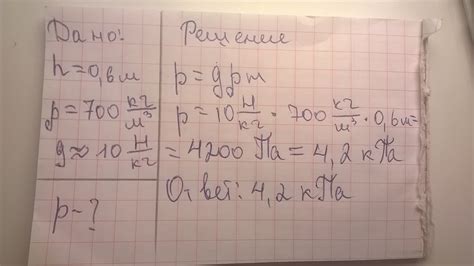 Дано:
h=0,6м
ρ=700 кг/м³
g≈10 Н/кг
p-?
Решение
p=gρh
p=10 Н/кг · 700 кг/м³ · 0,6м=
=4200 Па=4,2 кПа
Ответ: 4,2 кПа